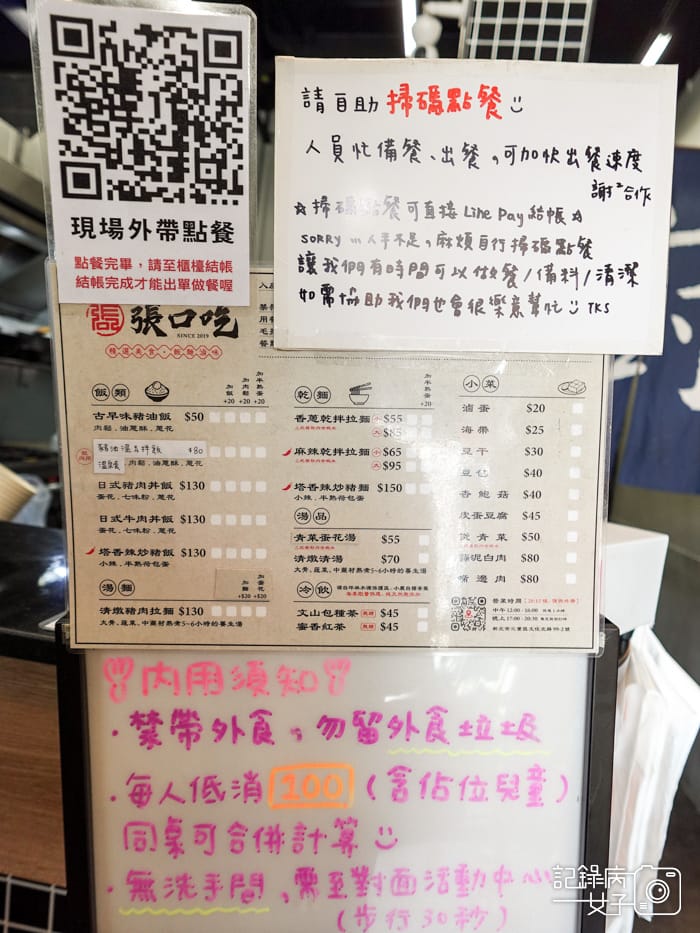 現場外帶點餐
點餐完畢，請至櫃檯結帳
結帳完成才能出單做餐喔
請自助掃碼點餐
人員忙備餐、出餐，可加快出餐速度
謝²合作
☆掃碼點餐可直接 Line Pay 結帳☆
SORRY... 人手不足，麻煩自行掃碼點餐
讓我們有時間可以做餐/備料/清潔
如需協助我們也會很樂意幫忙 TKS
張口吃
SINCE 2019
飯類
+20 +20 +20
古早味豬油飯 $50
肉鬆．油蔥酥．蔥花
豬油溫泉拌飯 $80
溫泉蛋．肉鬆．油蔥酥．蔥花
日式豬肉丼飯 $130
蛋花．七味粉．蔥花
日式牛肉丼飯 $130
蛋花．七味粉．蔥花
塔香辣炒豬飯 $130
小辣．半熟荷包蛋
湯麵
+$20 +$20
清燉豬肉拉麵 $130
大骨、蔬菜、中藥材熬煮5~6小時的養生湯
乾麵
+20
香蔥乾拌拉麵 小 $55
大 $85
麻辣乾拌拉麵 小 $65
大 $95
塔香辣炒豬麵 $150
小辣．半熟荷包蛋
湯品
青菜蛋花湯 $55
清燉清湯 $70
大骨、蔬菜、中藥材熬煮5~6小時的養生湯
冷飲
文山包種茶 無糖 $45
蜜香紅茶 無糖 $45
小菜
滷蛋 $20
海帶 $25
豆干 $30
豆包 $40
杏鮑菇 $40
皮蛋豆腐 $45
燙青菜 $50
蒜泥白肉 $80
嘴邊肉 $80
營業時間
中午 12:00 - 14:00
晚上 17:00 - 20:30
內用須知
·禁帶外食，勿留外食垃圾
·每人低消 100 (含佔位兒童)
同桌可合併計算
·無洗手間，需至對面活動中心
(步行30秒)
記錄病
女子